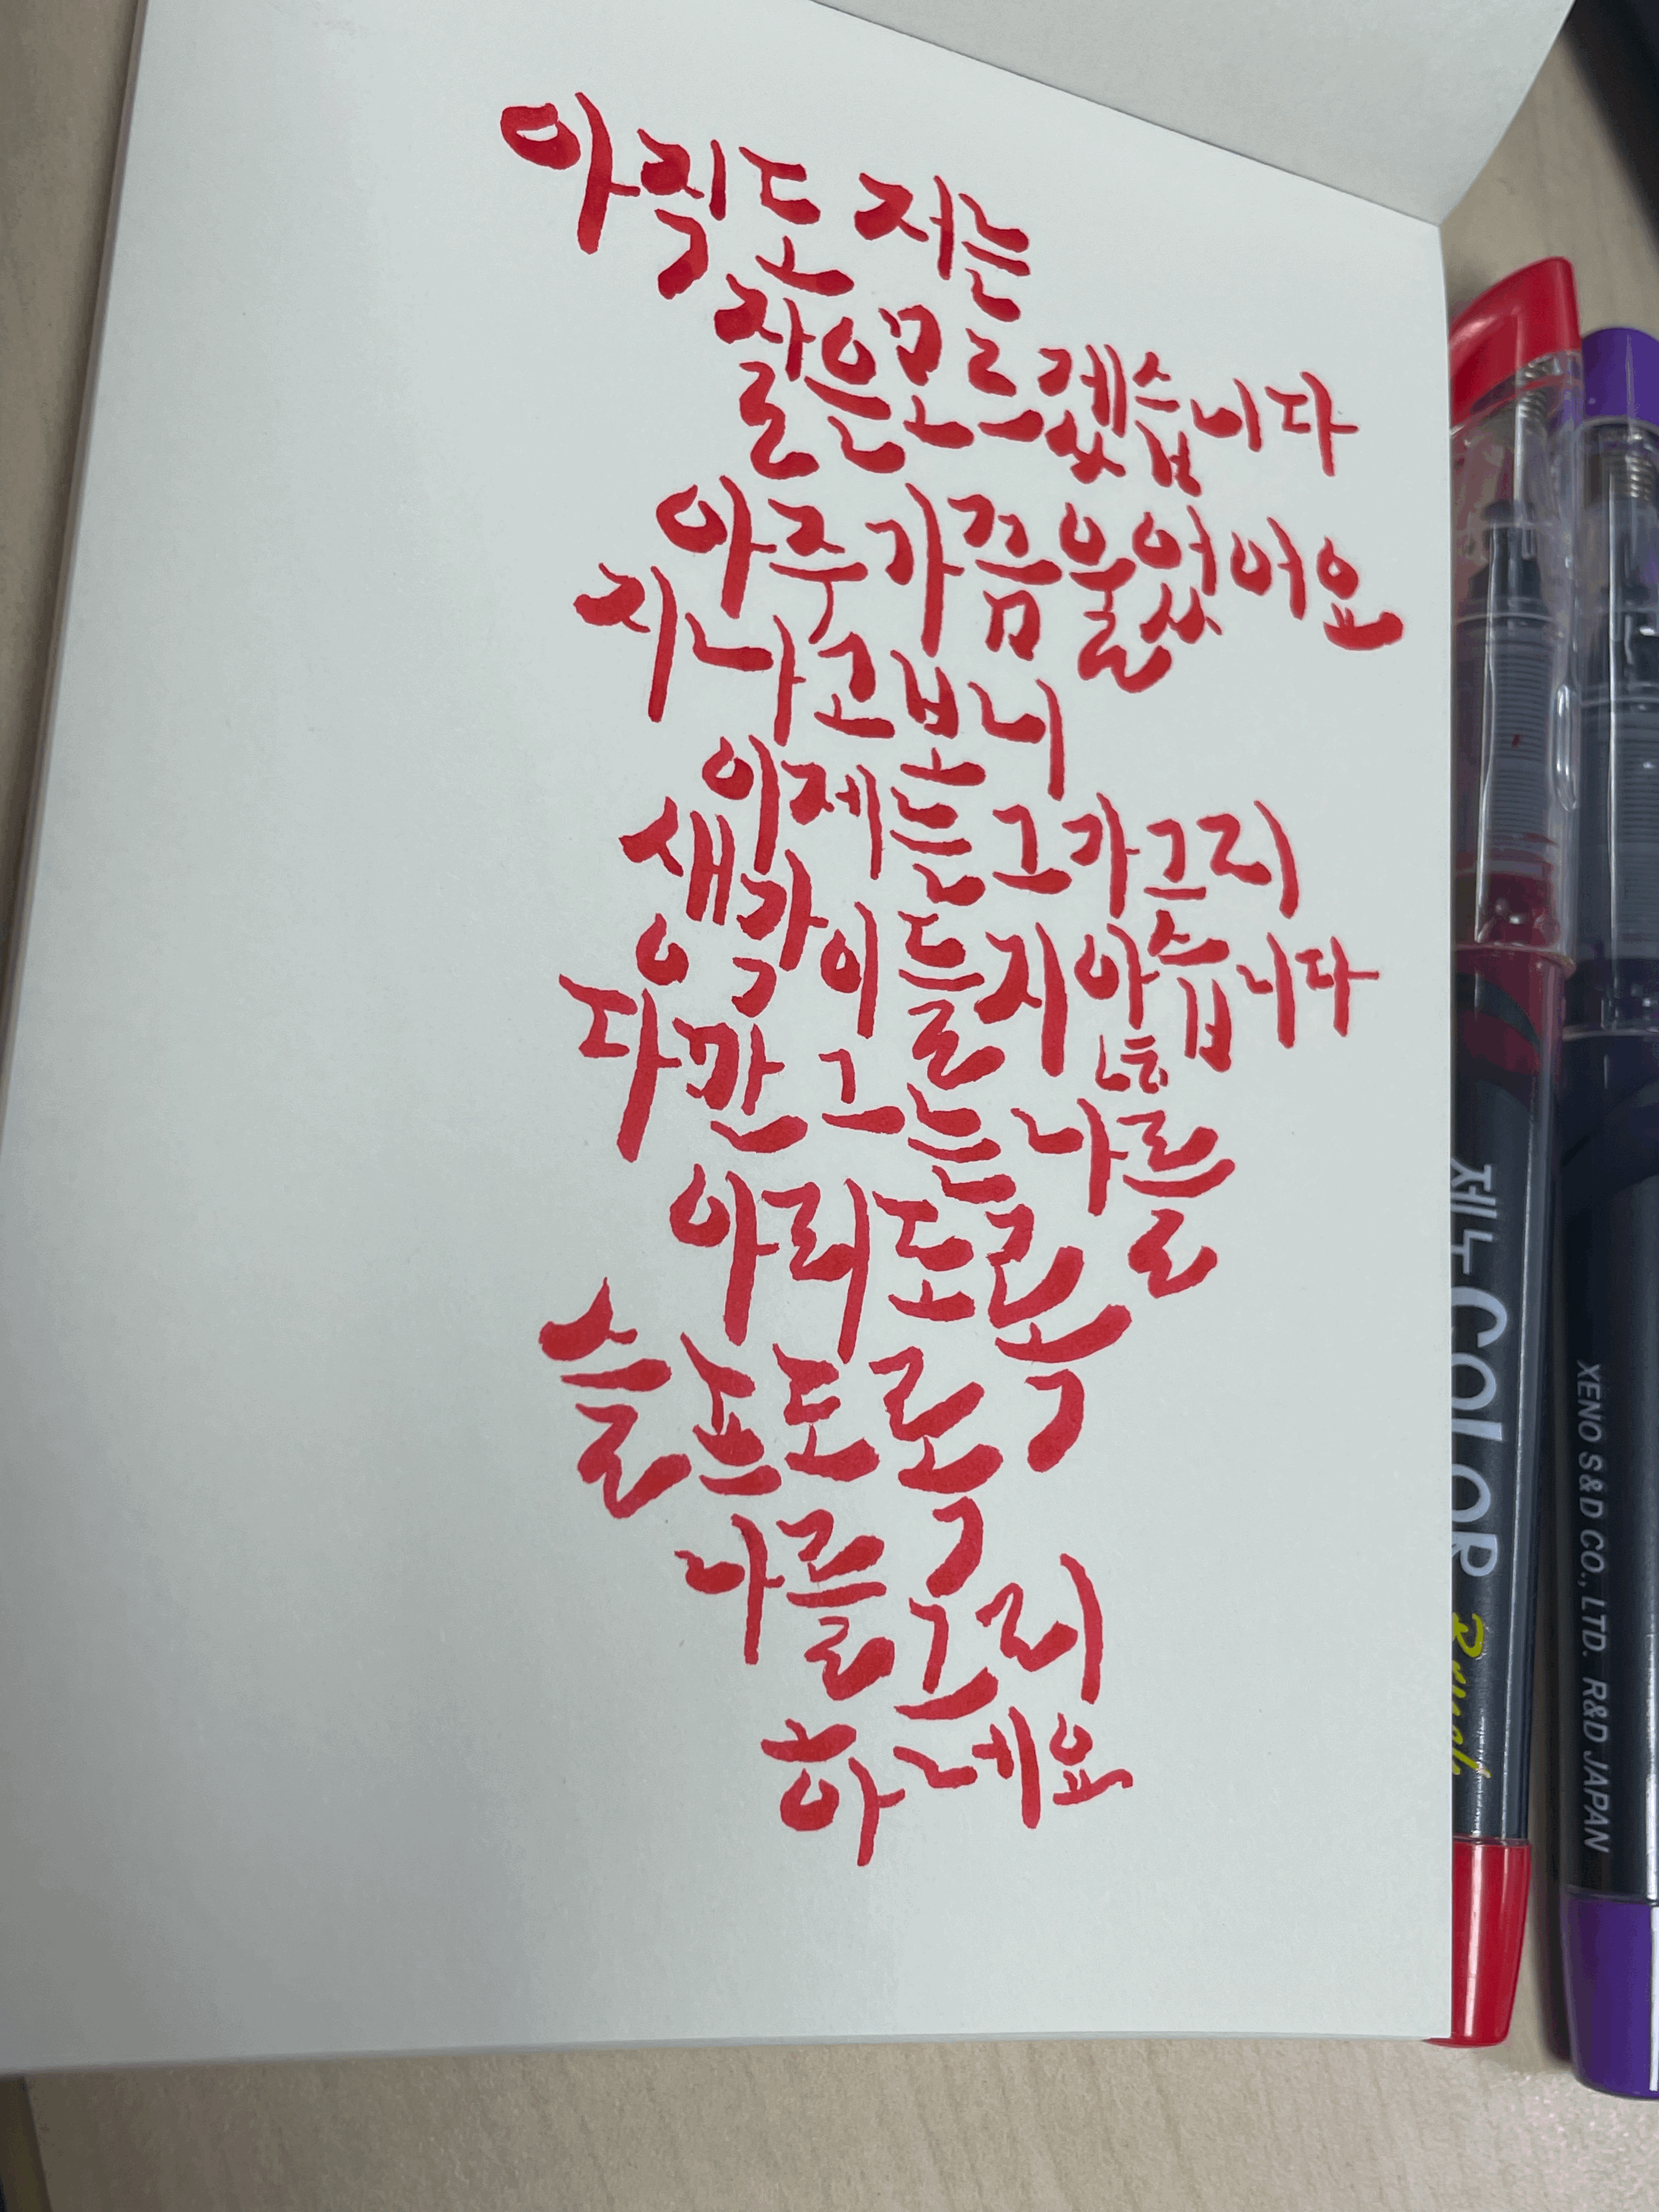 아직도 저는
잘은모르겠습니다
아주가끔울었어요
지나고보니
이제는그가그리
생각이들지않습니다
다만 그는나를
아리도록
슬프도록
나를그리
하네요
제노 COLOR
XENO S&D CO., LTD. R&D JAPAN